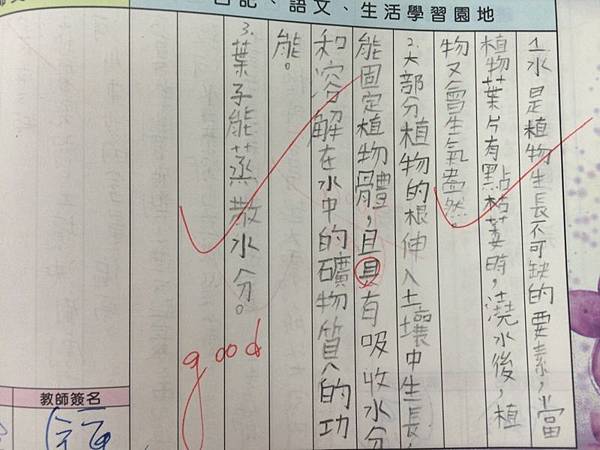 日記、語文、生活學習園地
1.水是植物生長不可缺的要素,當
植物葉片有點枯萎時,澆水後,植
物又會生氣盎然。
2.大部分植物的根伸入土壤中生長,
能固定植物體,且具有吸收水分
和溶解在水中的礦物質的功
能。
3.葉子能蒸散水分。
good
教師簽名